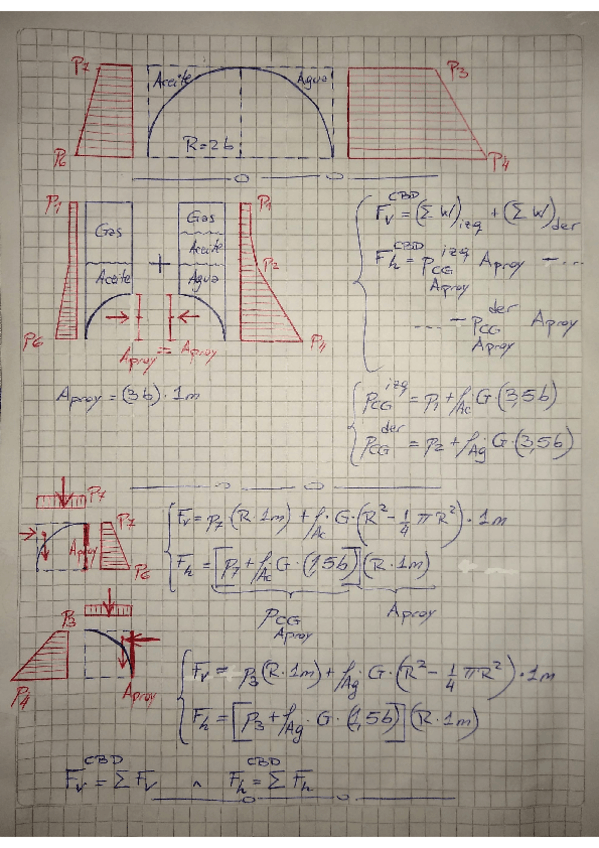 P7
Aceite
Agua
P3
P6
R=2b
P4
P1
Gas
Gas
P1
Aceite
Aceite
Agua
P2
P6
P4
Aproy = Aproy
F_v^CBD = (Σ W)_izq + (Σ W)_der
F_h^CBD = P_CG Aproy^izq Aproy - ...
... - P_CG Aproy^der Aproy
Aproy = (3b) · 1m
P_CG^izq = P1 + ρ_Ac G · (3,5b)
P_CG^der = P2 + ρ_Ag G · (3,5b)
P7
Aproy
P7
P6
F_v = P7 (R · 1m) + ρ_Ac · G · (R² - 1/4 π R²) · 1m
F_h = [P7 + ρ_Ac G · (1,5b)] (R · 1m)
P_CG Aproy
Aproy
P3
P4
Aproy
F_v = P3 (R · 1m) + ρ_Ag G · (R² - 1/4 π R²) · 1m
F_h = [P3 + ρ_Ag · G · (1,5b)] (R · 1m)
F_v^CBD = Σ F_v ^ F_h^CBD = Σ F_h